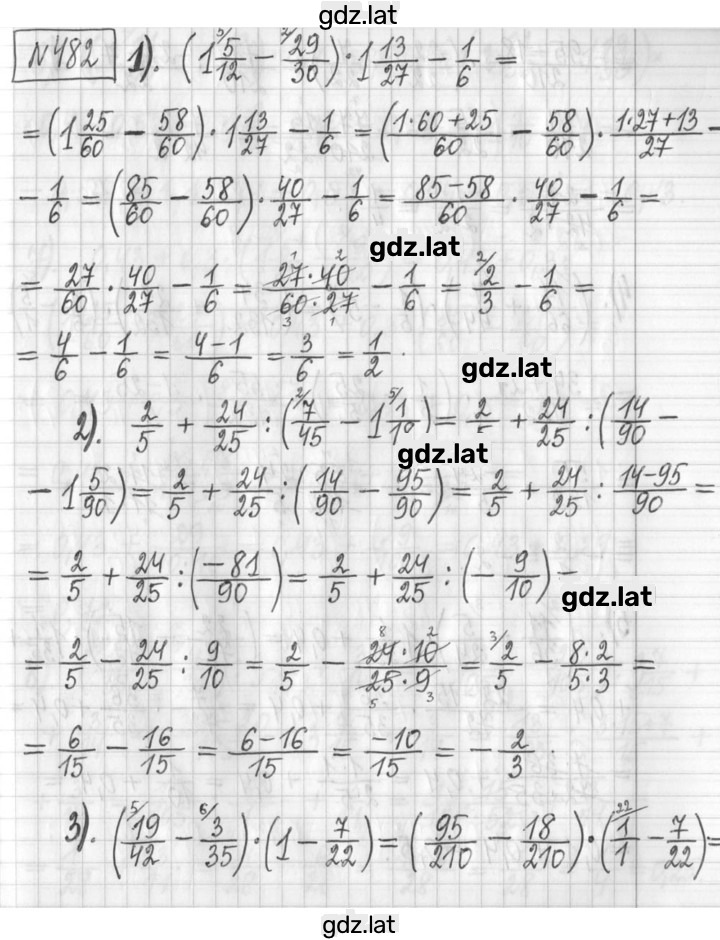 gdz.lat
№482 1). (1 5/12 − 29/30) · 1 13/27 − 1/6 =
= (1 25/60 − 58/60) · 1 13/27 − 1/6 = ((1·60+25)/60 − 58/60) · (1·27+13)/27 −
− 1/6 = (85/60 − 58/60) · 40/27 − 1/6 = (85−58)/60 · 40/27 − 1/6 =
gdz.lat
= 27/60 · 40/27 − 1/6 = (27·40)/(60·27) − 1/6 = 2/3 − 1/6 =
= 4/6 − 1/6 = (4−1)/6 = 3/6 = 1/2.
gdz.lat
2). 2/5 + 24/25 : (7/45 − 1 1/18) = 2/5 + 24/25 : (14/90 −
gdz.lat
− 1 5/90) = 2/5 + 24/25 : (14/90 − 95/90) = 2/5 + 24/25 : (14−95)/90 =
= 2/5 + 24/25 : (−81/90) = 2/5 + 24/25 : (−9/10) =
gdz.lat
= 2/5 − 24/25 : 9/10 = 2/5 − (24·10)/(25·9) = 2/5 − (8·2)/(5·3) =
= 6/15 − 16/15 = (6−16)/15 = −10/15 = −2/3.
3). (19/42 − 3/35) · (1 − 7/22) = (95/210 − 18/210) · (1/1 − 7/22) =
gdz.lat